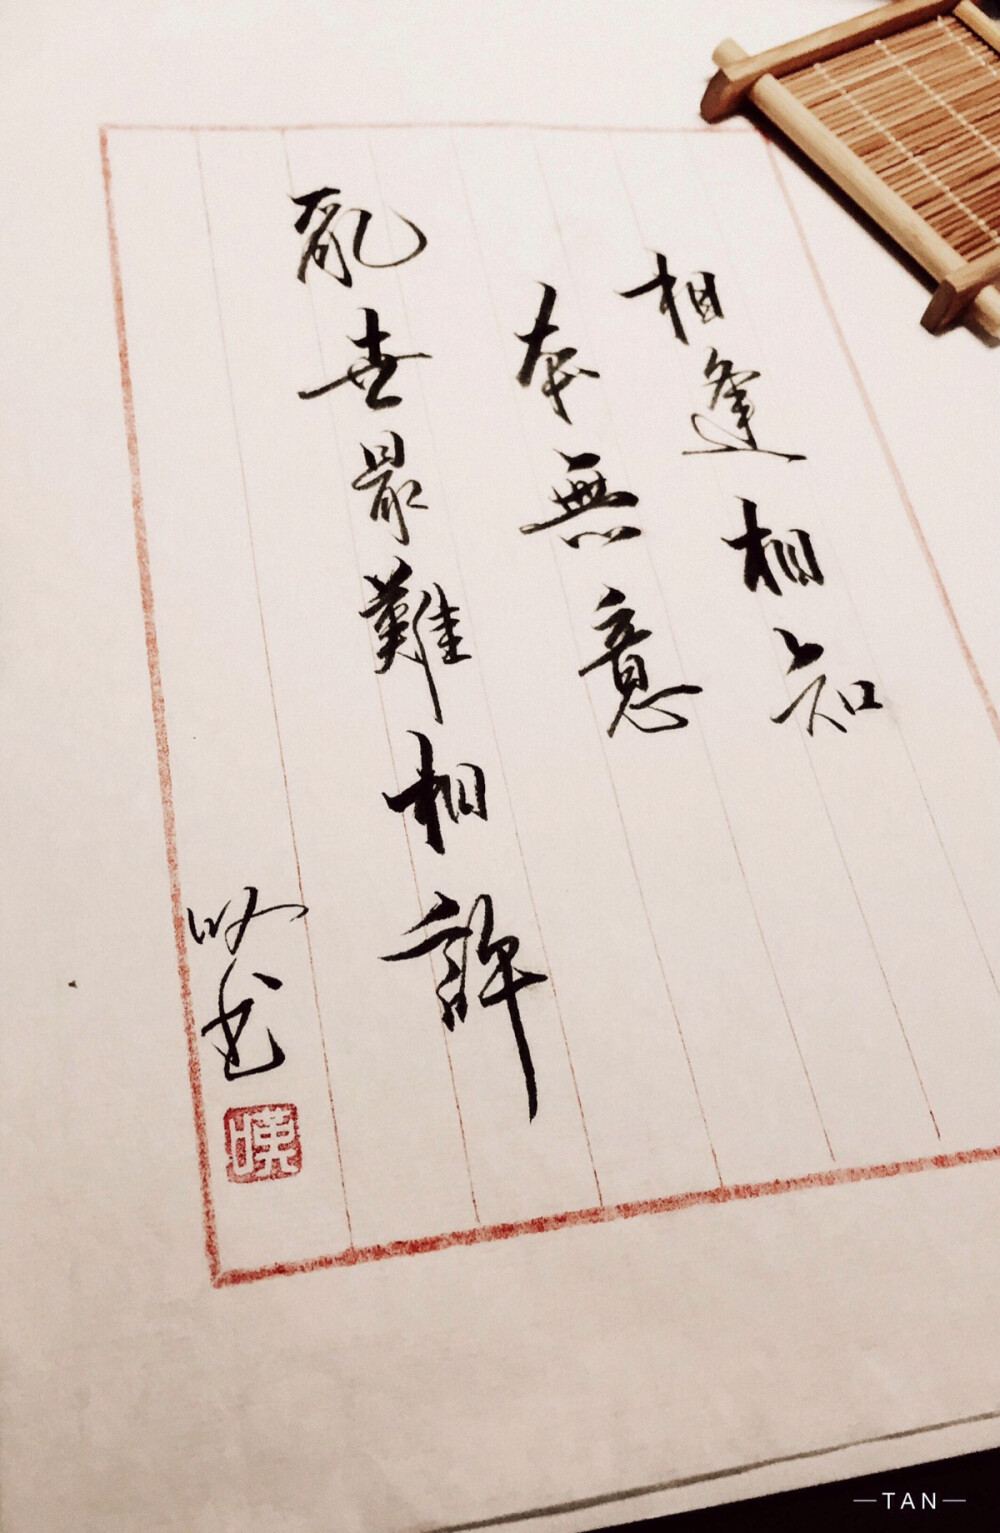 相逢相知
本無意
亂世最難相許
暎書
暵
—TAN—